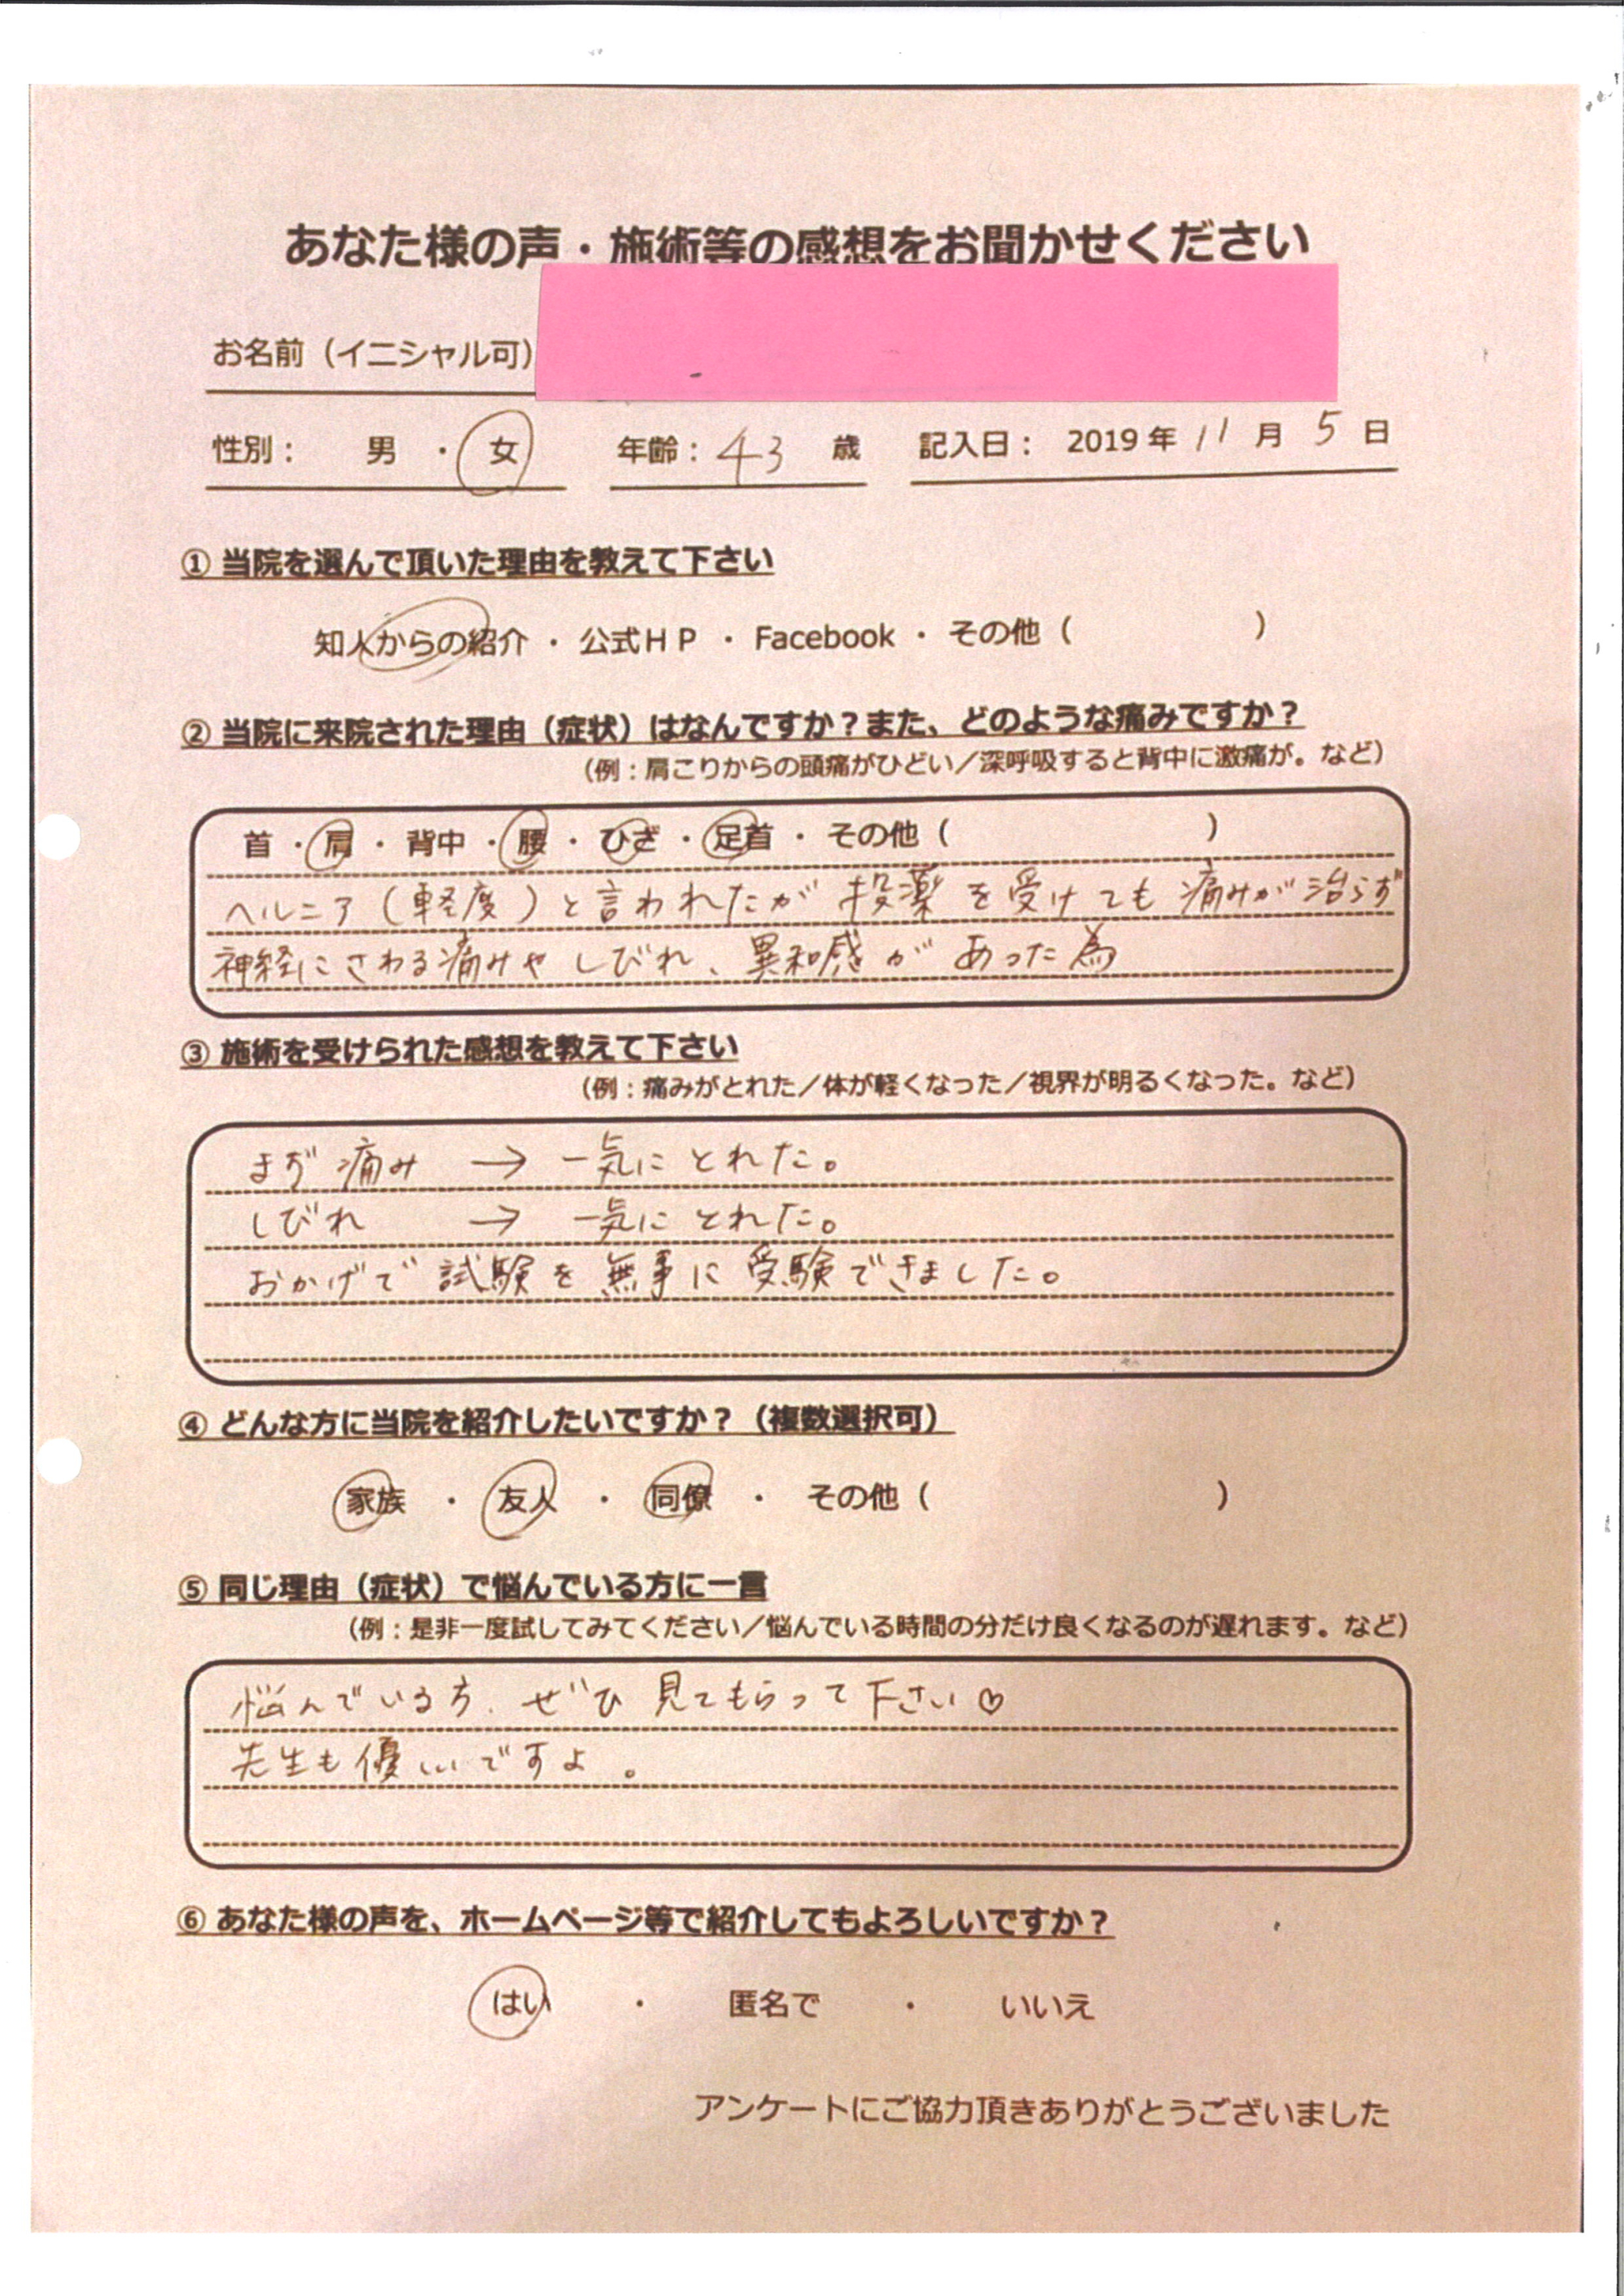 あなた様の声・施術等の感想をお聞かせください
お名前（イニシャル可）
性別： 男 ・ 女 年齢： 43 歳 記入日： 2019 年 11 月 5 日
① 当院を選んで頂いた理由を教えて下さい
知人からの紹介 ・ 公式ＨＰ ・ Facebook ・ その他（ ）
② 当院に来院された理由（症状）はなんですか？また、どのような痛みですか？
（例：肩こりからの頭痛がひどい／深呼吸すると背中に激痛が。など）
首 ・ 肩 ・ 背中 ・ 腰 ・ ひざ ・ 足首 ・ その他（ ）
ヘルニア（軽度）と言われたが 投薬 を受けても 痛みが治らず
神経にさわる痛みや しびれ、異和感 が あった為
③ 施術を受けられた感想を教えて下さい
（例：痛みがとれた／体が軽くなった／視界が明るくなった。など）
まず 痛み → 一気に とれた。
しびれ → 一気に とれた。
おかげで 試験を 無事に 受験できました。
④ どんな方に当院を紹介したいですか？（複数選択可）
家族 ・ 友人 ・ 同僚 ・ その他（ ）
⑤ 同じ理由（症状）で悩んでいる方に一言
（例：是非一度試してみてください／悩んでいる時間の分だけ良くなるのが遅れます。など）
悩んでいる方、ぜひ 見てもらって下さい♡
先生も優しいですよ。
⑥ あなた様の声を、ホームページ等で紹介してもよろしいですか？
はい ・ 匿名で ・ いいえ
アンケートにご協力頂きありがとうございました